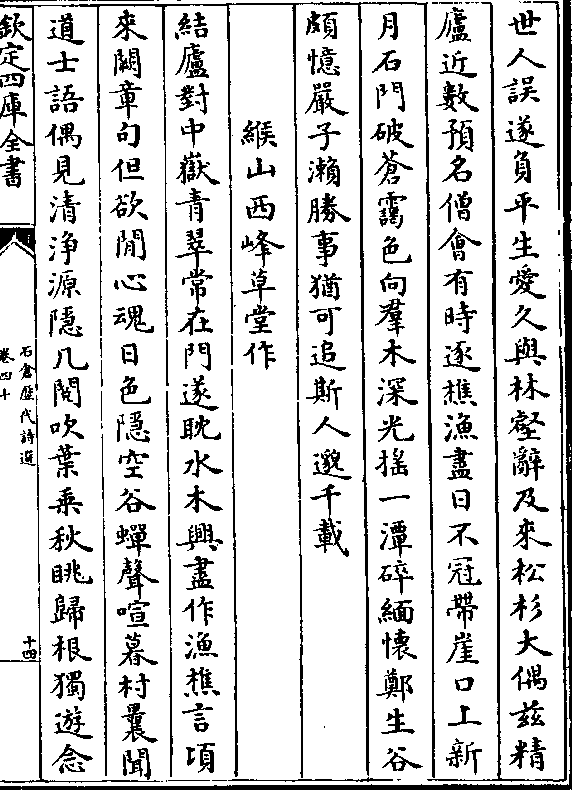 世人誤遂負平生愛久與林壑辭及來松杉大偶兹精
廬近數預名僧會有時逐樵漁盡日不冠帶崖口上新
月石門破蒼靄色向羣木深光揺一潭碎緬懷鄭生谷
頗憶嚴子瀬勝事猶可追斯人邈千載
緱山西峰草堂作
結廬對中嶽青翠常在門遂耽水木興盡作漁樵言頃
來闕章句但欲閒心魂日色隱空谷蟬聲喧暮村曩聞
道士語偶見清淨源隱几閱吹葉乗秋眺歸根獨遊念
欽定四庫全書
石倉歴代詩選
卷四十
十四